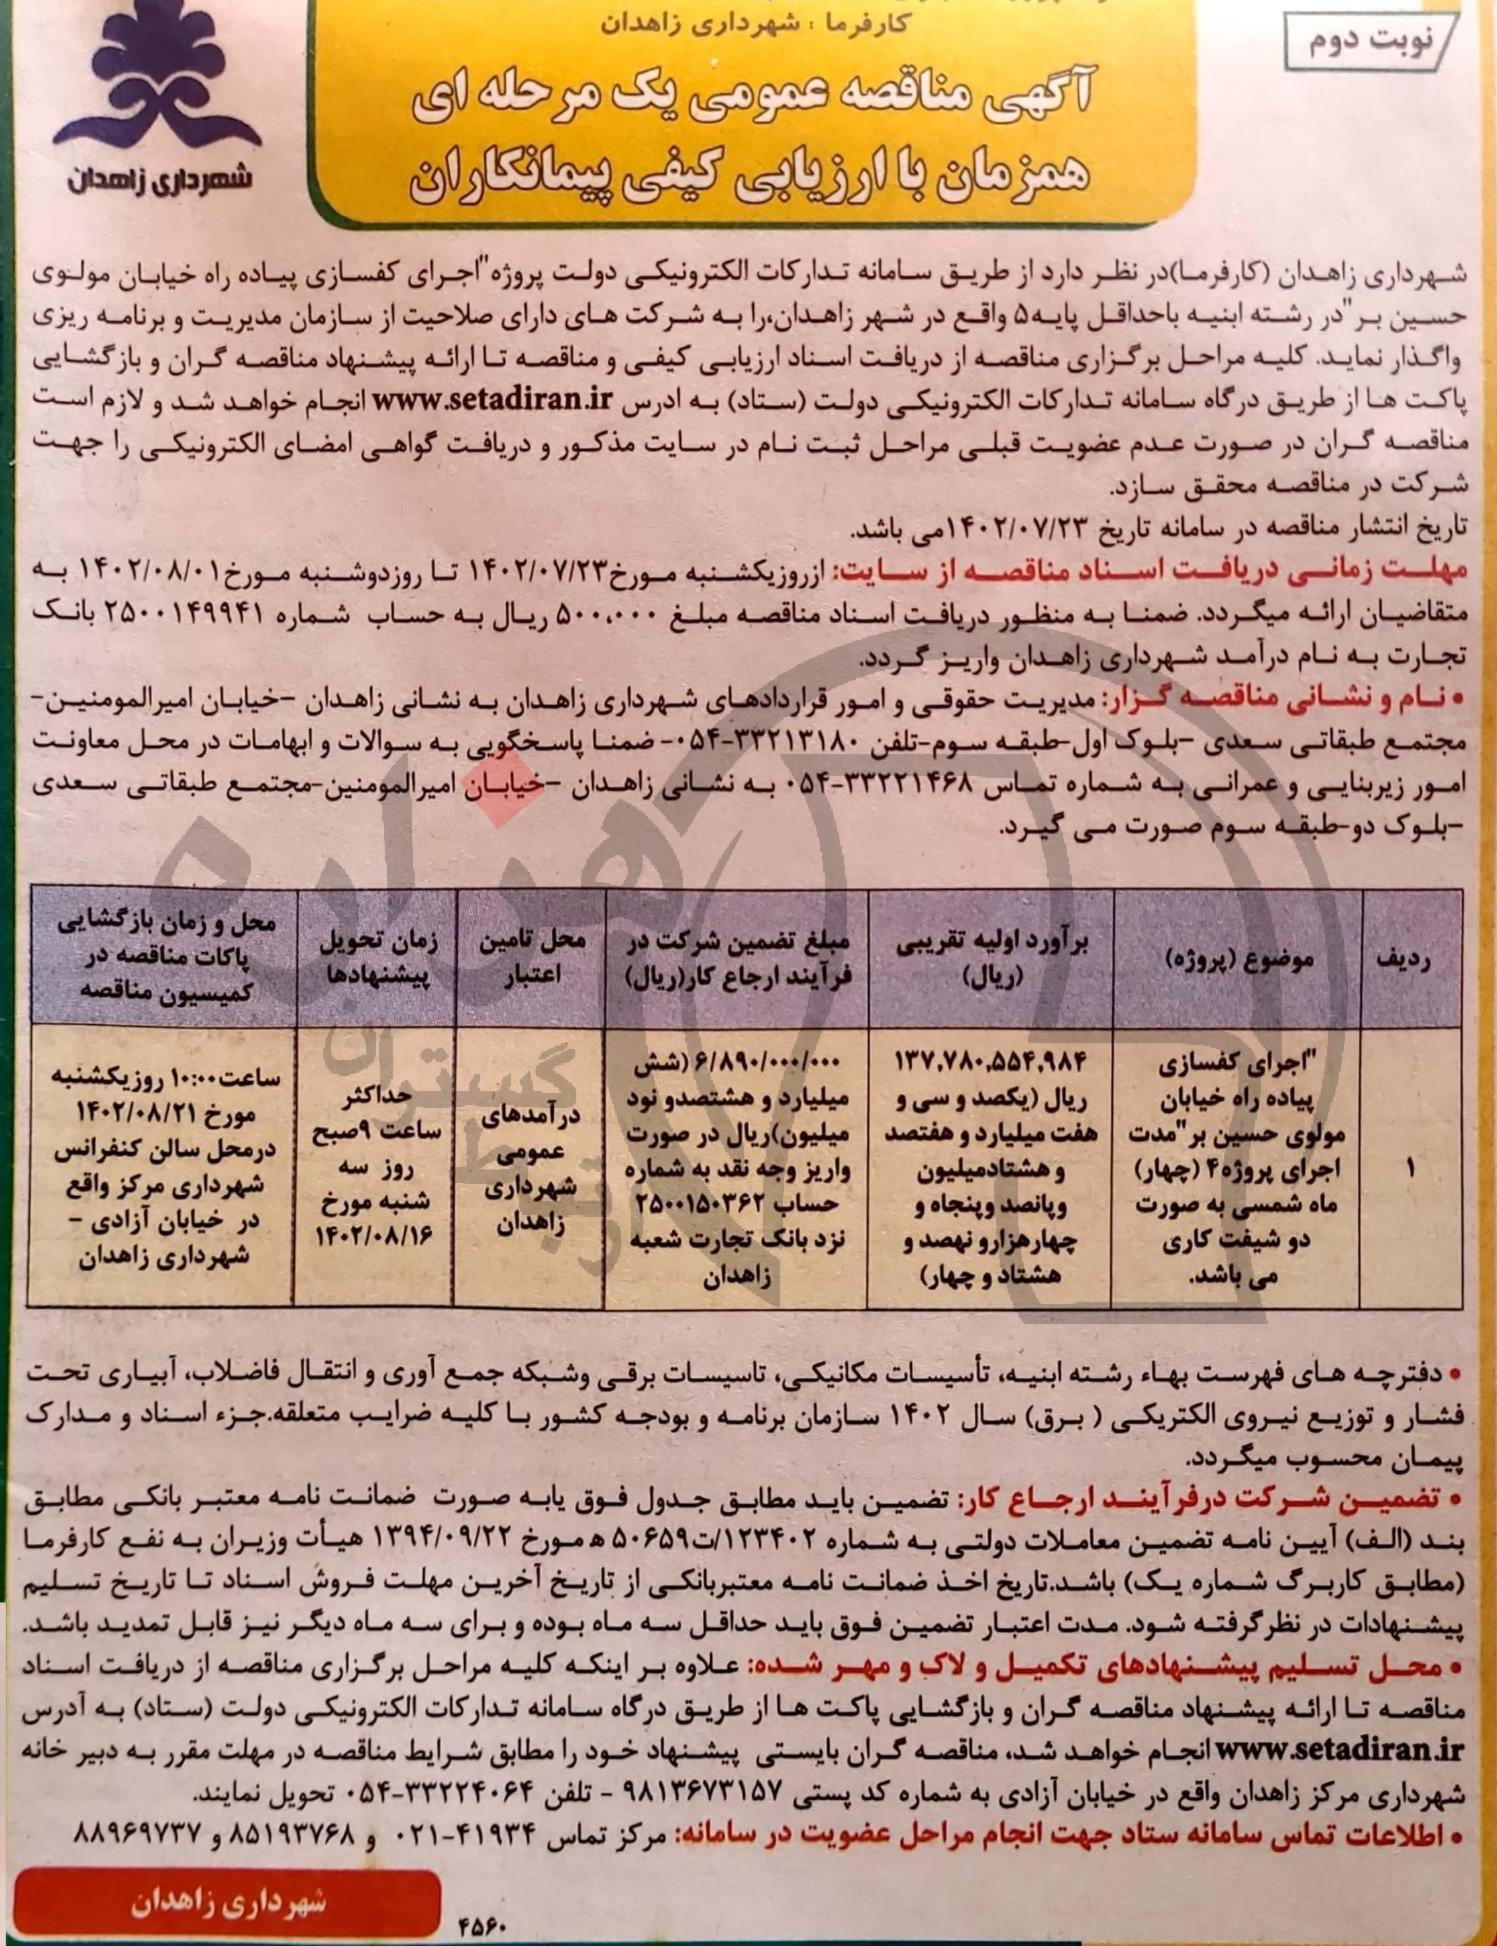 نوبت دوم
کارفرما : شهرداری زاهدان
آگهی مناقصه عمومی یک مرحله ای
همزمان با ارزیابی کیفی پیمانکاران
شهرداری زاهدان
شهرداری زاهدان (کارفرما)در نظر دارد از طریق سامانه تدارکات الکترونیکی دولت پروژه"اجرای کفسازی پیاده راه خیابان مولوی
حسین بر"در رشته ابنیه باحداقل پایه۵ واقع در شهر زاهدان،را به شرکت های دارای صلاحیت از سازمان مدیریت و برنامه ریزی
واگذار نماید. کلیه مراحل برگزاری مناقصه از دریافت اسناد ارزیابی کیفی و مناقصه تا ارائه پیشنهاد مناقصه گران و بازگشایی
پاکت ها از طریق درگاه سامانه تدارکات الکترونیکی دولت (ستاد) به ادرس www.setadiran.ir انجام خواهد شد و لازم است
مناقصه گران در صورت عدم عضویت قبلی مراحل ثبت نام در سایت مذکور و دریافت گواهی امضای الکترونیکی را جهت
شرکت در مناقصه محقق سازد.
تاریخ انتشار مناقصه در سامانه تاریخ ۱۴۰۲/۰۷/۲۳می باشد.
مهلت زمانی دریافت اسناد مناقصه از سایت: ازروزیکشنبه مورخ۱۴۰۲/۰۷/۲۳ تا روزدوشنبه مورخ۱۴۰۲/۰۸/۰۱ به
متقاضیان ارائه میگردد. ضمنا به منظور دریافت اسناد مناقصه مبلغ ۵۰۰،۰۰۰ ریال به حساب شماره ۲۵۰۰۱۴۹۹۴۱ بانک
تجارت به نام درآمد شهرداری زاهدان واریز گردد.
• نام و نشانی مناقصه گزار: مدیریت حقوقی و امور قراردادهای شهرداری زاهدان به نشانی زاهدان –خیابان امیرالمومنین–
مجتمع طبقاتی سعدی –بلوک اول–طبقه سوم–تلفن ۳۳۲۱۳۱۸۰–۰۵۴– ضمنا پاسخگویی به سوالات و ابهامات در محل معاونت
امور زیربنایی و عمرانی به شماره تماس ۳۳۲۲۱۴۶۸–۰۵۴ به نشانی زاهدان –خیابان امیرالمومنین–مجتمع طبقاتی سعدی
–بلوک دو–طبقه سوم صورت می گیرد.
ردیف
موضوع (پروژه)
برآورد اولیه تقریبی
(ریال)
مبلغ تضمین شرکت در
فرآیند ارجاع کار(ریال)
محل تامین
اعتبار
زمان تحویل
پیشنهادها
محل و زمان بازگشایی
پاکات مناقصه در
کمیسیون مناقصه
۱
"اجرای کفسازی
پیاده راه خیابان
مولوی حسین بر"مدت
اجرای پروژه۴ (چهار)
ماه شمسی به صورت
دو شیفت کاری
می باشد.
۱۳۷,۷۸۰,۵۵۴,۹۸۴
ریال (یکصد و سی و
هفت میلیارد و هفتصد
و هشتادمیلیون
وپانصد وپنجاه و
چهارهزارو نهصد و
هشتاد و چهار)
۶/۸۹۰/۰۰۰/۰۰۰ (شش
میلیارد و هشتصدو نود
میلیون)ریال در صورت
واریز وجه نقد به شماره
حساب ۲۵۰۰۱۵۰۳۶۲
نزد بانک تجارت شعبه
زاهدان
درآمدهای
عمومی
شهرداری
زاهدان
حداکثر
ساعت ۹صبح
روز سه
شنبه مورخ
۱۴۰۲/۰۸/۱۶
ساعت۱۰:۰۰ روزیکشنبه
مورخ ۱۴۰۲/۰۸/۲۱
درمحل سالن کنفرانس
شهرداری مرکز واقع
در خیابان آزادی –
شهرداری زاهدان
• دفترچه های فهرست بهاء رشته ابنیه، تأسیسات مکانیکی، تاسیسات برقی وشبکه جمع آوری و انتقال فاضلاب، آبیاری تحت
فشار و توزیع نیروی الکتریکی ( برق) سال ۱۴۰۲ سازمان برنامه و بودجه کشور با کلیه ضرایب متعلقه.جزء اسناد و مدارک
پیمان محسوب میگردد.
• تضمین شرکت درفرآیند ارجاع کار: تضمین باید مطابق جدول فوق یابه صورت ضمانت نامه معتبر بانکی مطابق
بند (الف) آیین نامه تضمین معاملات دولتی به شماره ۱۲۳۴۰۲/ت۵۰۶۵۹ ه مورخ ۱۳۹۴/۰۹/۲۲ هیأت وزیران به نفع کارفرما
(مطابق کاربرگ شماره یک) باشد.تاریخ اخذ ضمانت نامه معتبربانکی از تاریخ آخرین مهلت فروش اسناد تا تاریخ تسلیم
پیشنهادات در نظرگرفته شود. مدت اعتبار تضمین فوق باید حداقل سه ماه بوده و برای سه ماه دیگر نیز قابل تمدید باشد.
• محل تسلیم پیشنهادهای تکمیل و لاک و مهر شده: علاوه بر اینکه کلیه مراحل برگزاری مناقصه از دریافت اسناد
مناقصه تا ارائه پیشنهاد مناقصه گران و بازگشایی پاکت ها از طریق درگاه سامانه تدارکات الکترونیکی دولت (ستاد) به آدرس
www.setadiran.ir انجام خواهد شد، مناقصه گران بایستی پیشنهاد خود را مطابق شرایط مناقصه در مهلت مقرر به دبیر خانه
شهرداری مرکز زاهدان واقع در خیابان آزادی به شماره کد پستی ۹۸۱۳۶۷۳۱۵۷ – تلفن ۳۳۲۲۴۰۶۴–۰۵۴ تحویل نمایند.
• اطلاعات تماس سامانه ستاد جهت انجام مراحل عضویت در سامانه: مرکز تماس ۴۱۹۳۴–۰۲۱ و ۸۵۱۹۳۷۶۸ و ۸۸۹۶۹۷۳۷
شهرداری زاهدان
۴۵۶۰